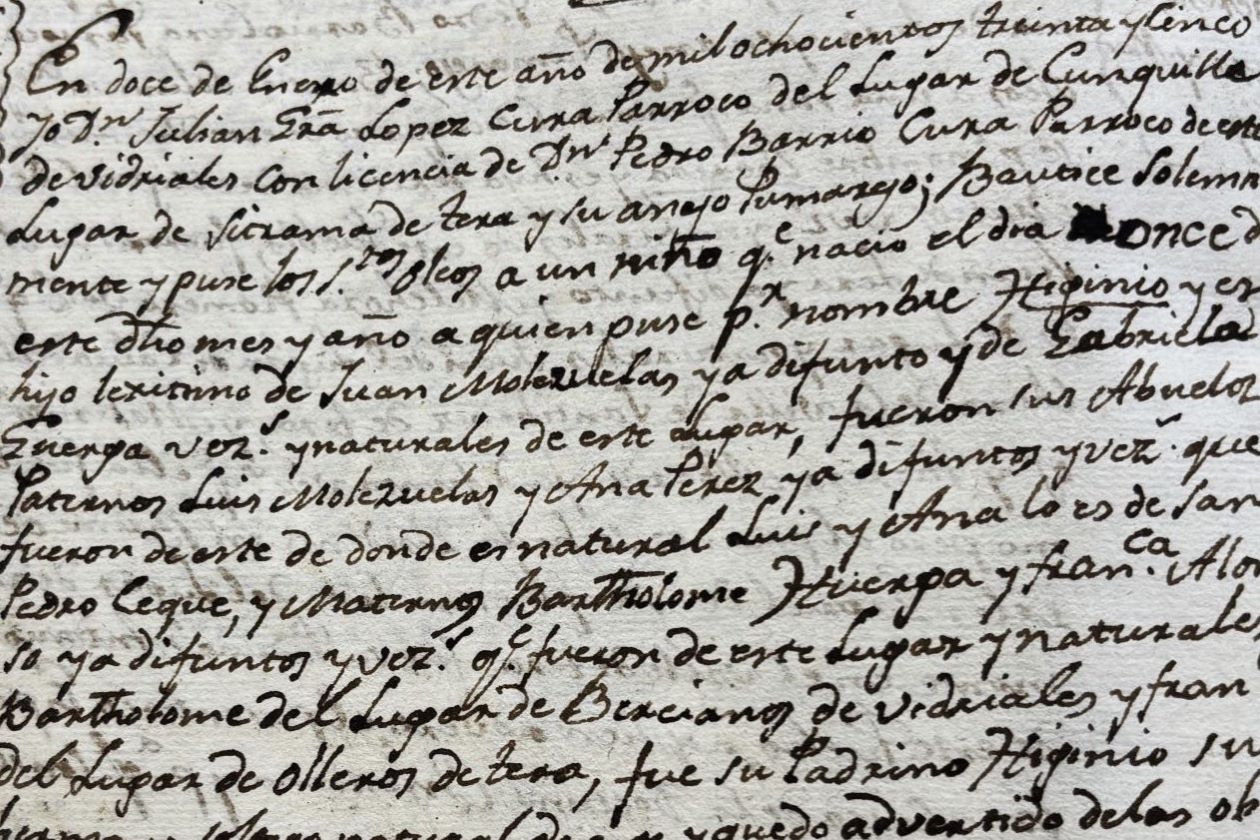 En doce de Enero de este año de mil ochocientos treinta y Cinco
yo Dn. Julian Gra Lopez Cura Parroco del Lugar de Cunquilla
de vidriales con licencia de Dn. Pedro Barrio Cura Parroco de este
Lugar de Sitrama de tera y su anejo Pumarejo; Bautice Solemne
mente y puse los S.tos Oleos a un niño q.e nacio el dia once d
este dho mes y año a quien puse p.r nombre Higinio y es
hijo lexitimo de Juan Molezuelas ya difunto y de Gabriela
Guerga vez.s y naturales de este Lugar, fueron sus Abuelos
Paternos Luis Molezuelas y Ana Perez ya difuntos y vez.s que
fueron de este de donde es natural Luis y Ana lo es de San
Pedro Ceque, y Maternos Bartholome Huerga y fran.ca Alon
so ya difuntos y vez.s q.e fueron de este Lugar y naturales
Bartholome del Lugar de Bercianos de vidriales y fran
del Lugar de Olleros de tera, fue su Padrino Higinio su
y quedo advertido de las ob